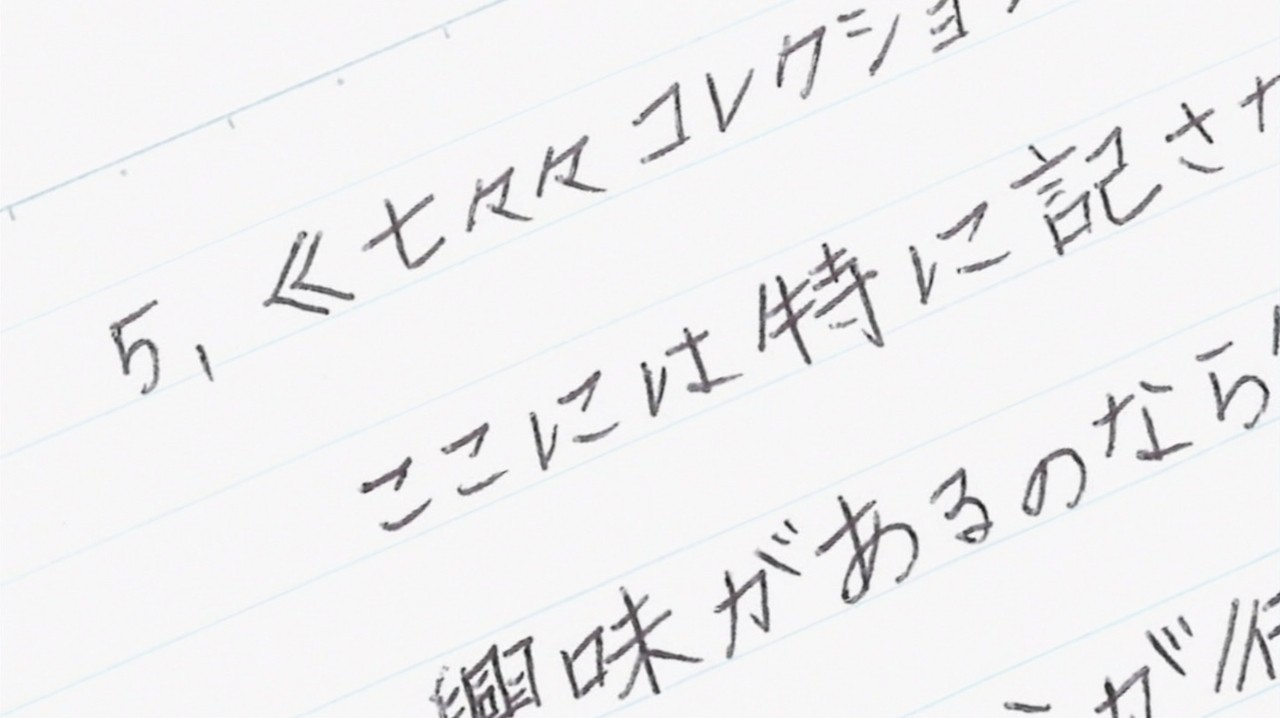 5、《七々々コレクショ
ここには特に記さ
興味があるのなら
が